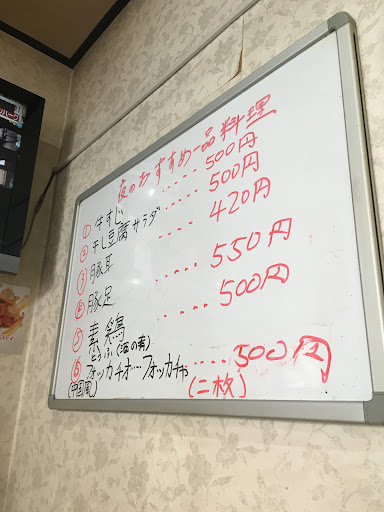 夜のおすすめ一品料理
① 牛すじ ..... 500円
② 干し豆腐サラダ ..... 500円
③ 豚耳 ..... 420円
④ 豚足 ..... 550円
⑤ 素鶏 .... 500円
とうふ(酒の肴)
⑥ フォッカチオ...フォッカチャ .... 500円
(中国風) (二枚)